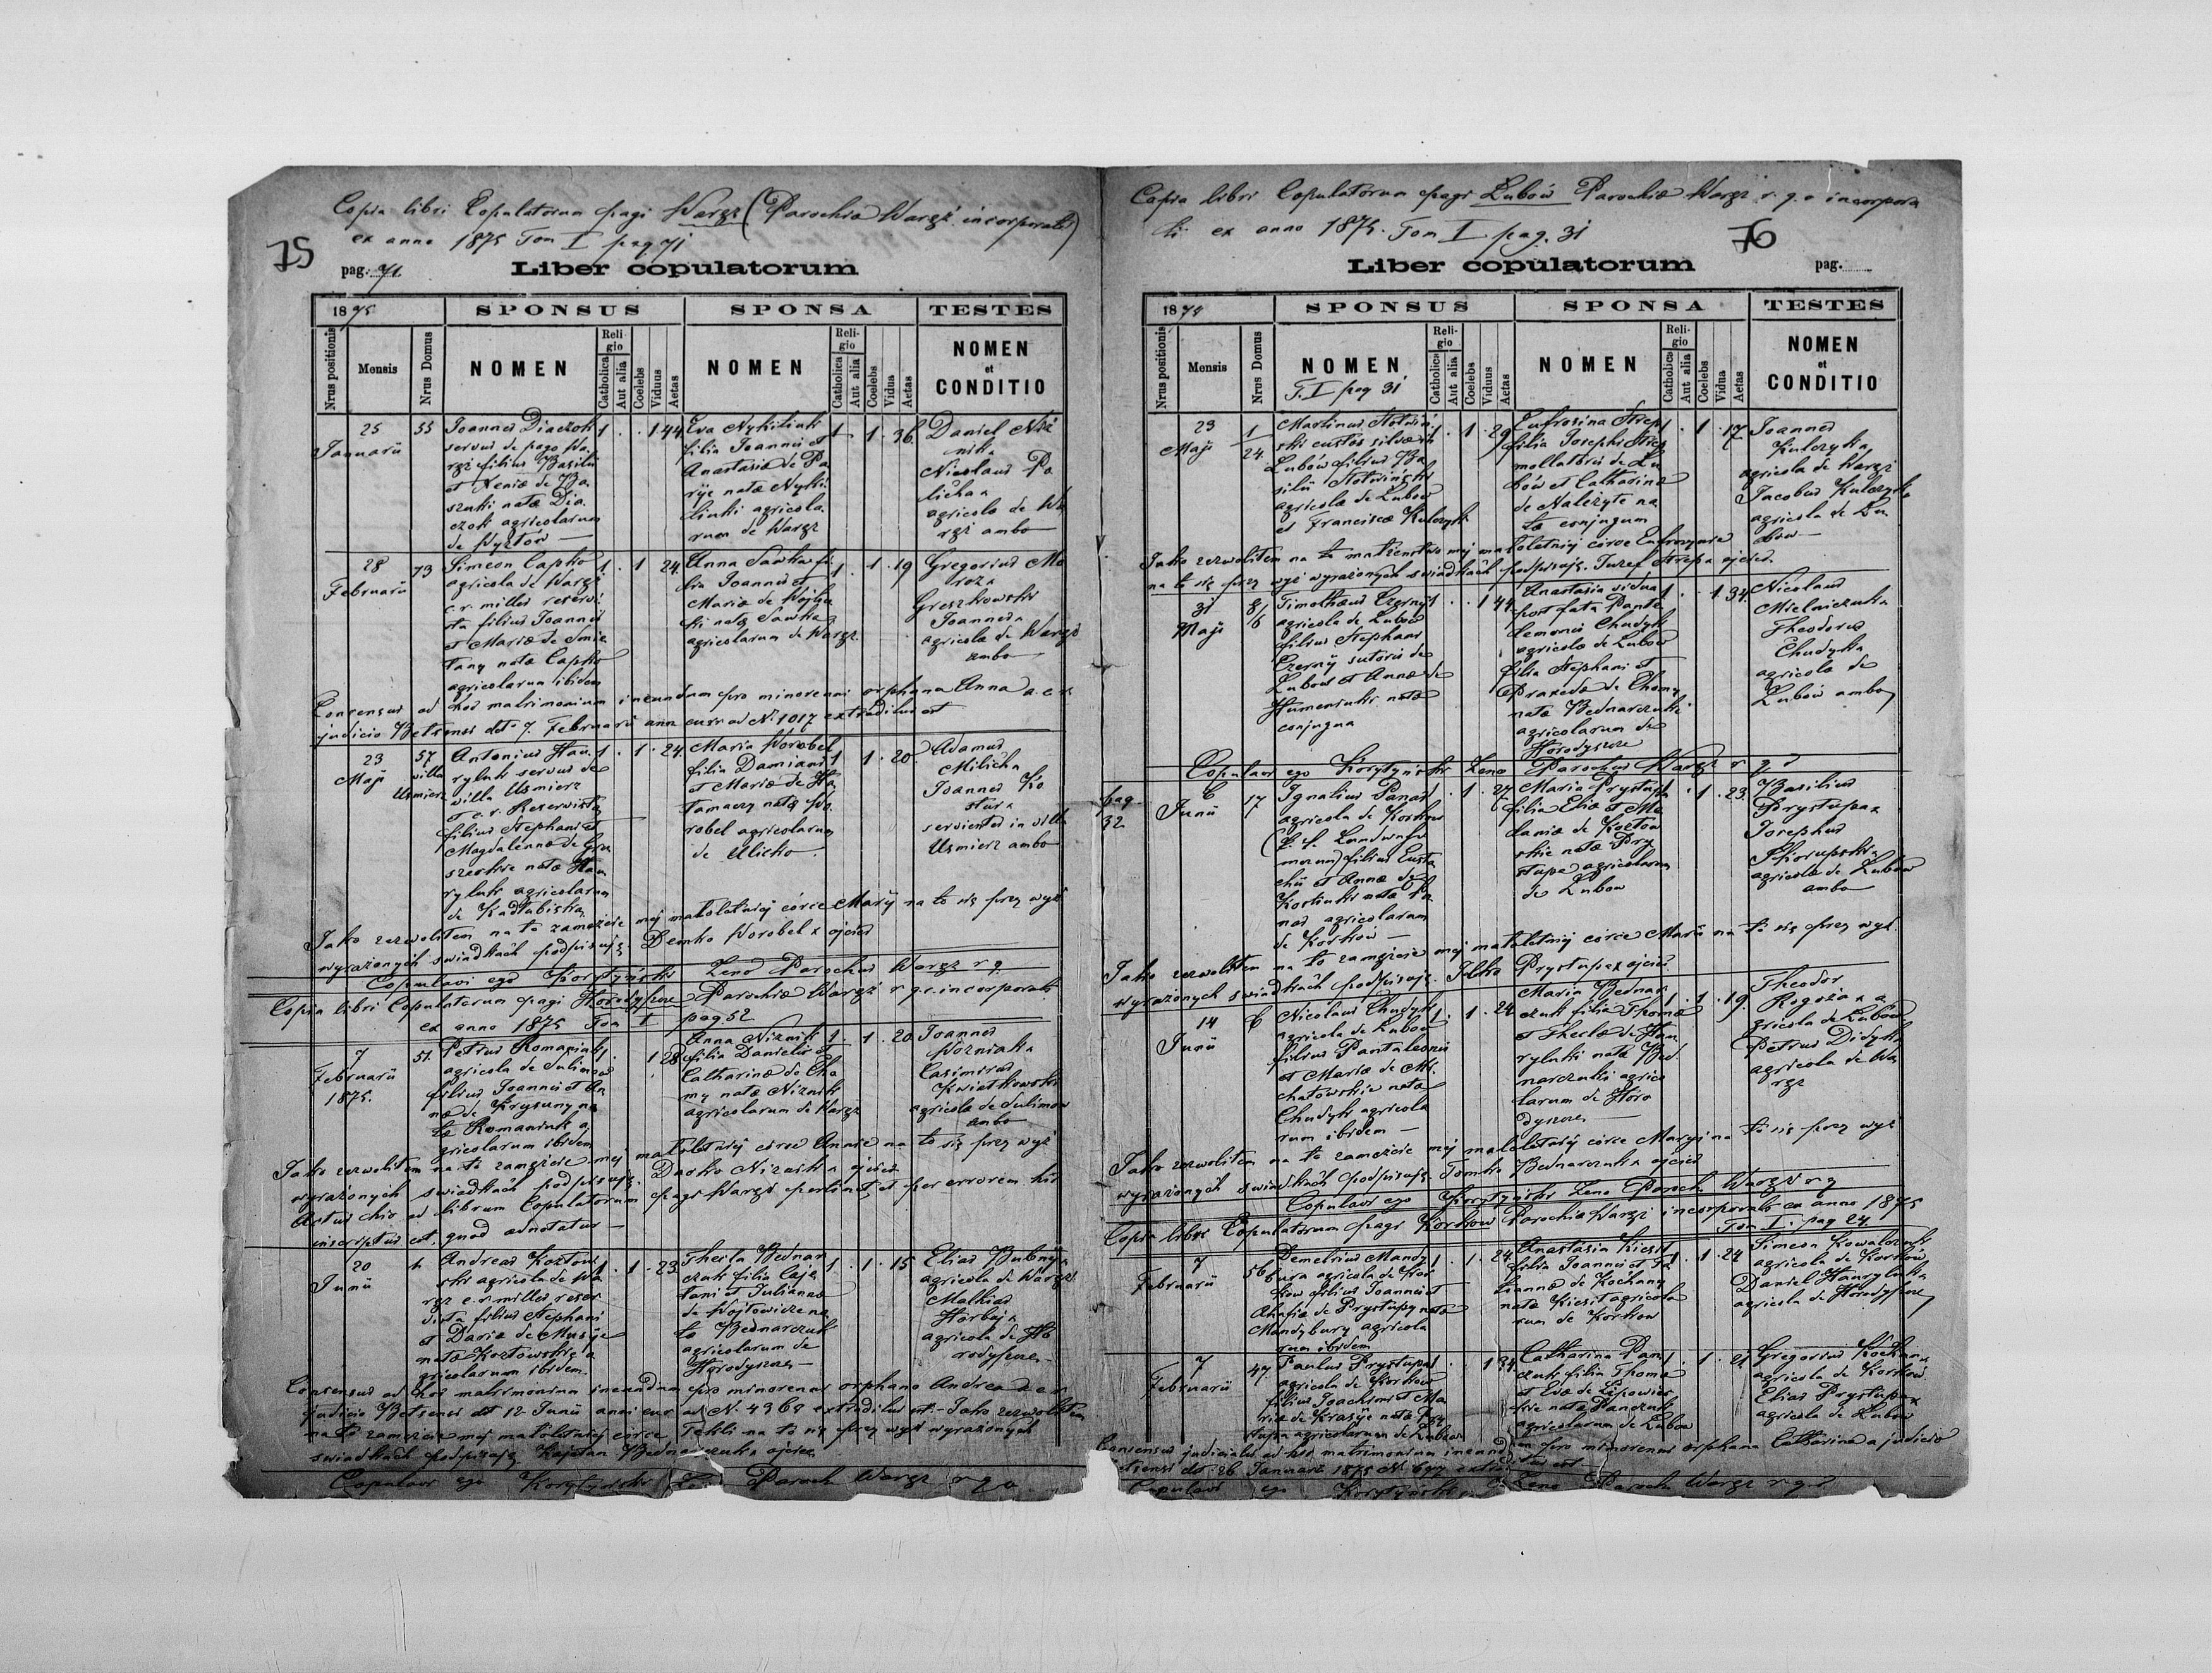 Copia libri Copulatorum pagi Waręż (Parochiae Waręż incorporati)
ex anno 1875 Tom I pag. 71
75
pag. 71.
Liber copulatorum
1875
SPONSUS
SPONSA
TESTES
Nrus positionis
Mensis
Nrus Domus
NOMEN
Religio
Catholica
Aut alia
Coelebs
Viduus
Aetas
NOMEN
Religio
Catholica
Aut alia
Coelebs
Vidua
Aetas
NOMEN
et
CONDITIO
25
Januarii
55
Joannes Diaczok
servus de pago Wa
ręż filius Basilii
et Xeniae de Ba
szuki natae Dia
czok agricolarum
de Wyżłow
1 . . 1 44
Eva Nykiliuk
filia Joannis et
Anastasiae de Pa
ryje natae Nyki
liuki agricola
rum de Waręż
1 1 . 36
Daniel
Nicolaus Pa
licha x
agricolae de Wa
ręż ambo
28
Februarii
73
Simeon Capko
agricola de Waręż
c. r. miles reservi
sta filius Joannis
et Mariae de Smie
tany natae Capko
agricolarum ibidem
1 . 1 24
Anna Sawka fi
lia Joannis et
Mariae de Wojto
ki natae Sawka
agricolarum de Waręż
1 . 1 . 19
Gregorius Mo
roz x
Greszkowski
Joannes x
agricola de Waręż
ambo
Consensus ad hoc matrimonium ineundum pro minorenni orphana Anna a c. r.
judicio Belzensi dto 7. Februarii anni curr ad N. 1017 extraditus est
23
Maji
57
villa
Usmierz
Antonius Hau
ryluk servus de
villa Usmierz
et c. r. Reservista
filius Stephani et
Magdalennae de Gru
szeckie natae Hau
ryluk agricolarum
de Kadłubiska
1 . 1 . 24
Maria Worobel
filia Damiani
et Mariae de Ha
tamacz natae Wo
robel agricolarum
de Ulicko
1 1 . 20
Adamus
Milich x
Joannes Ko
stur x
servientes in villa
Usmierz ambo
Jako zezwolitem na to zamężcie mej małoletniej córce Maryj na to się przy wyż
wyrażonych swiadkach podpisuję Demko Worobel x ojciec
Copulavi ego Korytyński Zeno Parochus Waręż r. g.
Copia libri Copulatorum pagi Horodyszcze Parochiae Waręż r. g. c. incorporati
ex anno 1875 Tom I pag. 52
7
Februarii
1875.
51.
Petrus Romaniuk
agricola de Sulimow
filius Joannis et An
nae de Krysuny na
tae Romaniuk a
gricolarum ibidem
1 . . 1 28
Anna Niznik
filia Danielis et
Catharinae de Cho
my natae Niznik
agricolarum de Waręż
1 1 . 20
Joannes
Wozniak x
Casimirus
Kwiatkowski
agricolae de Sulimow
ambo
Jako zezwolitem na to zamężcie mej małoletniej córce Annie na to się przy wyż
wyrażonych swiadkach podpisuję. Dańko Niznik x ojciec
Actus hic ad librum Copulatorum pagi Waręż pertinet, et per errorem hic
inscriptus est, quod adnotatur
20
Junii
Andreas Kozłow
ski agricola de Wa
ręż c. r. miles reser
vista filius Stephani
et Dariae de Musije
natae Kozłowskie a
gricolarum ibidem
1 . 1 . 23
Thecla Bednar
czuk filia Caje
tani et Julianae
de Wojtowicze na
tae Bednarczuk
agricolarum de
Horodyszcze
1 . 1 . 15
Elias Bubnij x
agricola de Waręż
Mathias
Harbaj x
agricola de Ho
rodyszcze
Consensus ad hoc matrimonium ineundum pro minorenni orphano Andrea a c. r.
judicio Belzensi dto 12 Junii anni curr ad N. 4368 extraditus est. Jako zezwolitem
na to zamężcie mej małoletniej córce Tekli na to się przy wyż wyrażonych
swiadkach podpisuję Kajetan Bednarczuk x ojciec
Copulavi ego Korytyński Zeno Paroch Waręż r. g. c.
Copia libri Copulatorum pagi Lubów Parochiae Waręż r. g. c. incorpora
ti ex anno 1875. Tom I pag. 31
76
pag.
Liber copulatorum
1875
SPONSUS
SPONSA
TESTES
Nrus positionis
Mensis
Nrus Domus
NOMEN
T. I pag 31
Religio
Catholica
Aut alia
Coelebs
Viduus
Aetas
NOMEN
Religio
Catholica
Aut alia
Coelebs
Vidua
Aetas
NOMEN
et
CONDITIO
23
Maji
1
24
Martinus Stotwiń
ski custos silvae in
Lubów filius Ba
silii Stotwiński
agricolae de Lubow
et Franciscae Kulczyk
1 . 1 . 29
Eufrosina Strep
filia Josephi Strep
mollatoris de Lu
bów et Catharinae
de Należyte na
tae conjugum
1 . 1 . 17
Joannes
Kulczyk x
agricola de Waręż
Jacobus Kulczyk x
agricola de Lu
bow
Jako zezwolitem na to małżeństwo mej małoletniej córce Eufrozynie
na to się przy wyż wyrażonych swiadkach podpisuję. Jozef Strepa ojciec
31
Maji
8/6
Timotheus Czerny
agricola de Lubow
filius Stephani
Czerny sutoris de
Lubow et Annae de
Humeniuki natae
conjugum
1 . . 1 44
Anastasia vidua
post fata Panta
lemonis Chudyk
agricolae de Lubow
filia Stephani et
Praxedae de Chomy
natae Bednarczuki
agricolarum de
Horodyszcze
1 . . 1 34
Nicolaus
Mielniczuk x
Theodorus
Chudyk x
agricolae de
Lubow ambo
Copulavi ego Korytyński Zeno Parochus Waręż r. g. c.
pag.
32
6
Junii
17
Ignatius Panas
agricola de Korkow
filius Eusta
chii et Annae de
Korkuki natae Pa
nas agricolarum
de Korków
1 . 1 . 27
Maria Prystupa
filia Eliae et Me
laniae de Kozłow
skie natae Pry
stupa agricolarum
de Lubow
. 1 . 23
Basilius
Prystupa x
Josephus
Skorupski x
agricolae de Lubow
ambo
Jako zezwolitem na to zamężcie mej małoletniej córce Marii na to się przy wyż
wyrażonych swiadkach podpisuję. Ilko Prystupa x ojciec
14
Junii
6
Nicolaus Chudyk
agricola de Lubow
filius Pantaleonis
et Mariae de Mi
chałowskie natae
Chudyk agricola
rum ibidem
1 . 1 . 24
Maria Bednar
czuk filia Thomae
et Theclae de Hau
ryluki natae Bed
narczuki agrico
larum de Horo
dyszcze
1 . 1 . 19
Theodor
Rogoża x a
gricola de Lubow
Petrus Didyk x
agricola de Wa
ręż
Jako zezwolitem na to zamężcie mej małoletniej córce Maryi na to się przy wyż
wyrażonych swiadkach podpisuję. Tomko Bednarczuk x ojciec
Copulavi ego Korytyński Zeno Paroch. Waręż r. g.
Copia libri Copulatorum pagi Korkow Parochiae Waręż incorporati ex anno 1875
Tom I. pag 24.
7
Februarii
56
Demetrius Mandy
bura agricola de Kor
kow filius Joannis et
Ahafiae de Prystupy natae
Mandybury agricola
rum ibidem
1 . 1 . 24
Anastasia Kiesit
filia Joannis et Ta
tiannae de Kochany
natae Kiesit agricola
rum de Korkow
1 . 1 . 24
Simeon Kowalczuk
agricola de Korków
Daniel Hawryluk x
agricola de Horodyszcze
7
Februarii
47
Paulus Prystupa
agricola de Korkow
filius Joachimi et Ma
riae de Krasije natae Pry
stupa agricolarum de Lubow
1 . . 1 34
Catharina Pan
czuk filia Thomae
et Evae de Lipowiec
kie natae Panczuk
agricolarum de Lubow
1 . 1 . 21
Gregorius Kochan x
agricola de Korków
Elias Prystupa x
agricola de Lubow
Consensus judicialis ad hoc matrimonium ineundum pro minorenni orphana Catharina a judicio
Belzensi dto 26 Januarii 1875 N. 677 extraditus est
Copulavi ego Korytyński Zeno Paroch Waręż r. g. c.